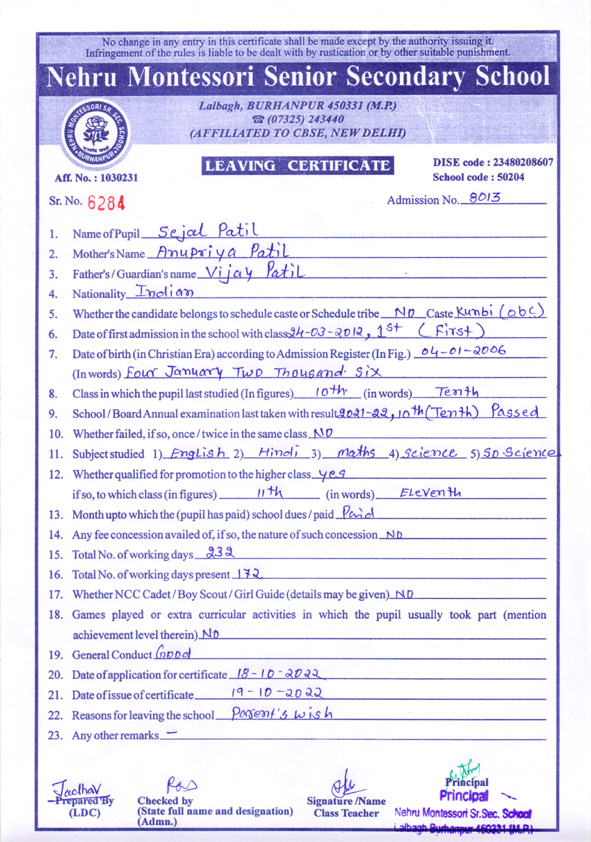 No change in any entry in this certificate shall be made except by the authority issuing it.
Infringement of the rules is liable to be dealt with by rustication or by other suitable punishment.
Nehru Montessori Senior Secondary School
Lalbagh, BURHANPUR 450331 (M.P.)
☎ (07325) 243440
(AFFILIATED TO CBSE, NEW DELHI)
NEHRU MONTESSORI SR. SEC. SCHOOL
BURHANPUR
LEAVING CERTIFICATE
DISE code : 23480208607
School code : 50204
Aff. No. : 1030231
Sr. No. 6284
Admission No. 8013
1. Name of Pupil Sejal Patil
2. Mother's Name Anupriya Patil
3. Father's / Guardian's name Vijay Patil
4. Nationality Indian
5. Whether the candidate belongs to schedule caste or Schedule tribe NO Caste Kunbi (obc)
6. Date of first admission in the school with class 24-03-2012, 1st (First)
7. Date of birth (in Christian Era) according to Admission Register (In Fig.) 04-01-2006
(In words) Four January Two Thousand Six
8. Class in which the pupil last studied (In figures) 10th (in words) Tenth
9. School / Board Annual examination last taken with result 2021-22, 10th (Tenth) Passed
10. Whether failed, if so, once / twice in the same class NO
11. Subject studied 1) English 2) Hindi 3) maths 4) science 5) So.Science
12. Whether qualified for promotion to the higher class yes
if so, to which class (in figures) 11th (in words) Eleventh
13. Month upto which the (pupil has paid) school dues / paid Paid
14. Any fee concession availed of, if so, the nature of such concession NO
15. Total No. of working days 232
16. Total No. of working days present 172
17. Whether NCC Cadet / Boy Scout / Girl Guide (details may be given) NO
18. Games played or extra curricular activities in which the pupil usually took part (mention
achievement level therein) NO
19. General Conduct Good
20. Date of application for certificate 18-10-2022
21. Date of issue of certificate 19-10-2022
22. Reasons for leaving the school Parent's wish
23. Any other remarks —
Jadhav
Prepared By
(LDC)
Checked by
(State full name and designation)
(Admn.)
Signature /Name
Class Teacher
Principal
Principal
Nehru Montessori Sr.Sec. School
Lalbagh Burhanpur 450331 (M.P.)